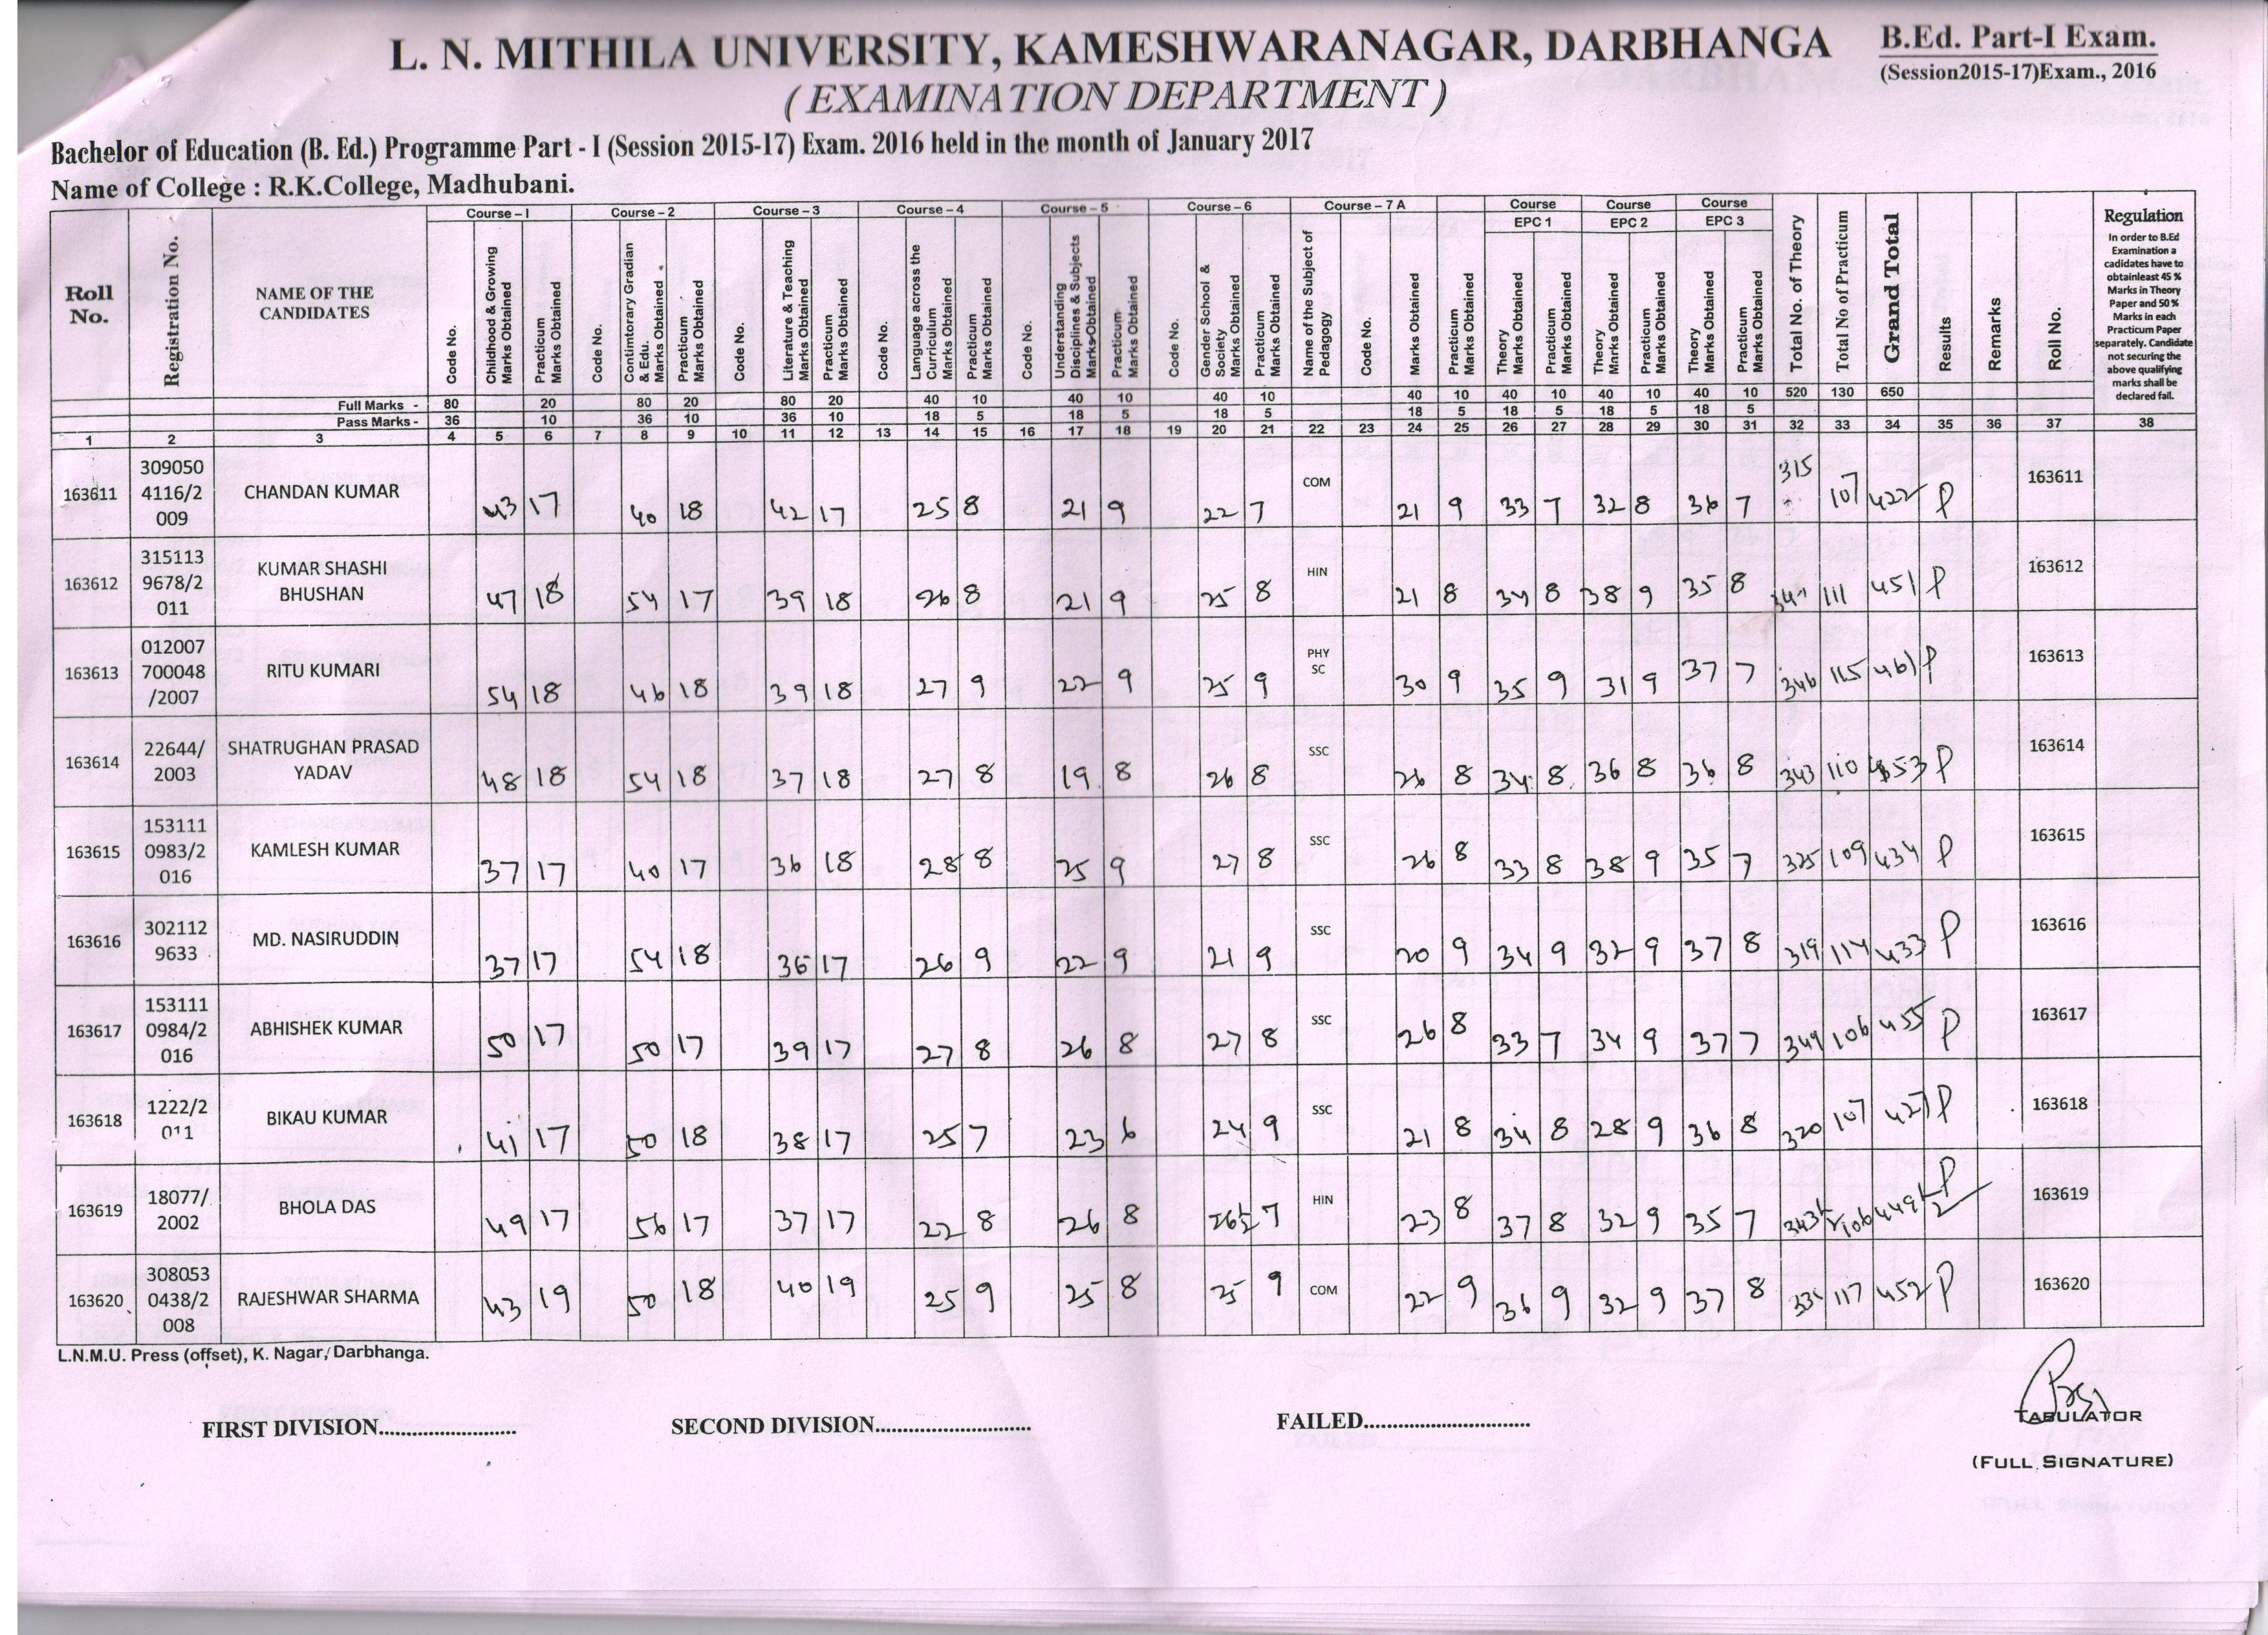 L. N. MITHILA UNIVERSITY, KAMESHWARANAGAR, DARBHANGA
B.Ed. Part-I Exam.
(Session2015-17)Exam., 2016
(EXAMINATION DEPARTMENT)
Bachelor of Education (B. Ed.) Programme Part - I (Session 2015-17) Exam. 2016 held in the month of January 2017
Name of College : R.K.College, Madhubani.
Course – I Course – 2 Course – 3 Course – 4 Course – 5 Course – 6 Course – 7 A Course Course Course
EPC 1 EPC 2 EPC 3
Roll No.
Registration No.
NAME OF THE CANDIDATES
Code No.
Childhood & Growing Marks Obtained
Practicum Marks Obtained
Code No.
Contimtorary Gradian & Edu. Marks Obtained
Practicum Marks Obtained
Code No.
Literature & Teaching Marks Obtained
Practicum Marks Obtained
Code No.
Language across the Curriculum Marks Obtained
Practicum Marks Obtained
Code No.
Understanding Disciplines & Subjects Marks Obtained
Practicum Marks Obtained
Code No.
Gender School & Society Marks Obtained
Practicum Marks Obtained
Name of the Subject of Pedagogy
Code No.
Marks Obtained
Practicum Marks Obtained
Theory Marks Obtained
Practicum Marks Obtained
Theory Marks Obtained
Practicum Marks Obtained
Theory Marks Obtained
Practicum Marks Obtained
Total No. of Theory
Total No of Practicum
Grand Total
Results
Remarks
Roll No.
Regulation
In order to B.Ed
Examination a
cadidates have to
obtainleast 45 %
Marks in Theory
Paper and 50 %
Marks in each
Practicum Paper
separately. Candidate
not securing the
above qualifying
marks shall be
declared fail.
Full Marks - 80 20 80 20 80 20 40 10 40 10 40 10 40 10 40 10 40 10 40 10 520 130 650
Pass Marks - 36 10 36 10 36 10 18 5 18 5 18 5 18 5 18 5 18 5 18 5
1 2 3 4 5 6 7 8 9 10 11 12 13 14 15 16 17 18 19 20 21 22 23 24 25 26 27 28 29 30 31 32 33 34 35 36 37 38
163611 309050 4116/2 009 CHANDAN KUMAR 43 17 40 18 42 17 25 8 21 9 22 7 COM 21 9 33 7 32 8 36 7 315 107 422 P 163611
163612 315113 9678/2 011 KUMAR SHASHI BHUSHAN 47 18 54 17 39 18 26 8 21 9 25 8 HIN 21 8 34 8 38 9 35 8 111 451 P 163612
163613 012007 700048 /2007 RITU KUMARI 54 18 46 18 39 18 27 9 22 9 25 9 PHY SC 30 9 35 9 31 9 37 7 346 115 461 P 163613
163614 22644/ 2003 SHATRUGHAN PRASAD YADAV 48 18 54 18 37 18 27 8 19 8 26 8 SSC 26 8 34 8 36 8 36 8 343 110 453 P 163614
163615 153111 0983/2 016 KAMLESH KUMAR 37 17 40 17 36 18 28 8 25 9 27 8 SSC 26 8 33 8 38 9 35 7 325 109 434 P 163615
163616 302112 9633 MD. NASIRUDDIN 37 17 54 18 36 17 26 9 22 9 21 9 SSC 20 9 34 9 32 9 37 8 319 114 433 P 163616
163617 153111 0984/2 016 ABHISHEK KUMAR 50 17 50 17 39 17 27 8 26 8 27 8 SSC 26 8 33 7 34 9 37 7 349 106 455 P 163617
163618 1222/2 011 BIKAU KUMAR 41 17 50 18 38 17 25 7 23 6 24 9 SSC 21 8 34 8 28 9 36 8 320 107 427 P 163618
163619 18077/ 2002 BHOLA DAS 49 17 56 17 37 17 22 8 26 8 26½ 7 HIN 23 8 37 8 32 9 35 7 343½ 106 449½ P 163619
163620 308053 0438/2 008 RAJESHWAR SHARMA 43 19 50 18 40 19 25 9 25 8 25 9 COM 22 9 36 9 32 9 37 8 117 452 P 163620
L.N.M.U. Press (offset), K. Nagar, Darbhanga.
FIRST DIVISION......................... SECOND DIVISION............................ FAILED..............................
TABULATOR
(FULL SIGNATURE)